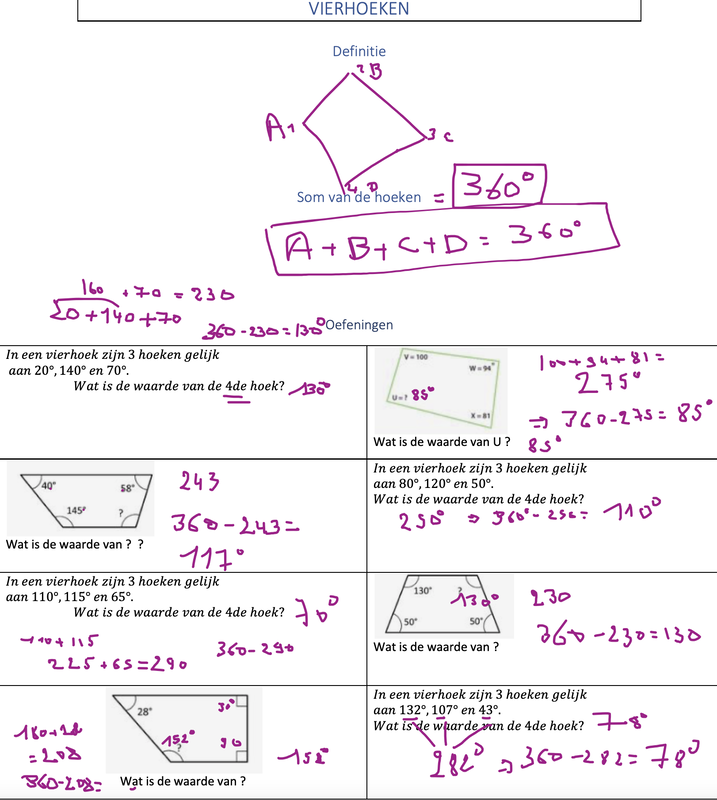 VIERHOEKEN
Definitie
2 B
A 1
3 C
4 D
Som van de hoeken = 360°
A + B + C + D = 360°
160 + 70 = 230
20 + 140 + 70
360 - 230 = 130°
Oefeningen
In een vierhoek zijn 3 hoeken gelijk
aan 20°, 140° en 70°.
Wat is de waarde van de 4de hoek? 130°
V = 100
W = 94°
U = ? 85°
X = 81
100 + 94 + 81 =
275°
⇒ 360 - 275 = 85°
Wat is de waarde van U ? 85°
40°
58°
145°
?
243
360 - 243 =
117°
Wat is de waarde van ? ?
In een vierhoek zijn 3 hoeken gelijk
aan 80°, 120° en 50°.
Wat is de waarde van de 4de hoek?
250° ⇒ 360° - 250 = 110°
In een vierhoek zijn 3 hoeken gelijk
aan 110°, 115° en 65°.
Wat is de waarde van de 4de hoek? 70°
110 + 115
225 + 65 = 290
360 - 290
130°
?
130°
50°
50°
230
360 - 230 = 130
Wat is de waarde van ?
28°
90
152°
?
180 + 28
= 208
360 - 208 =
152°
Wat is de waarde van ?
In een vierhoek zijn 3 hoeken gelijk
aan 132°, 107° en 43°.
Wat is de waarde van de 4de hoek? 78°
282° ⇒ 360 - 282 = 78°